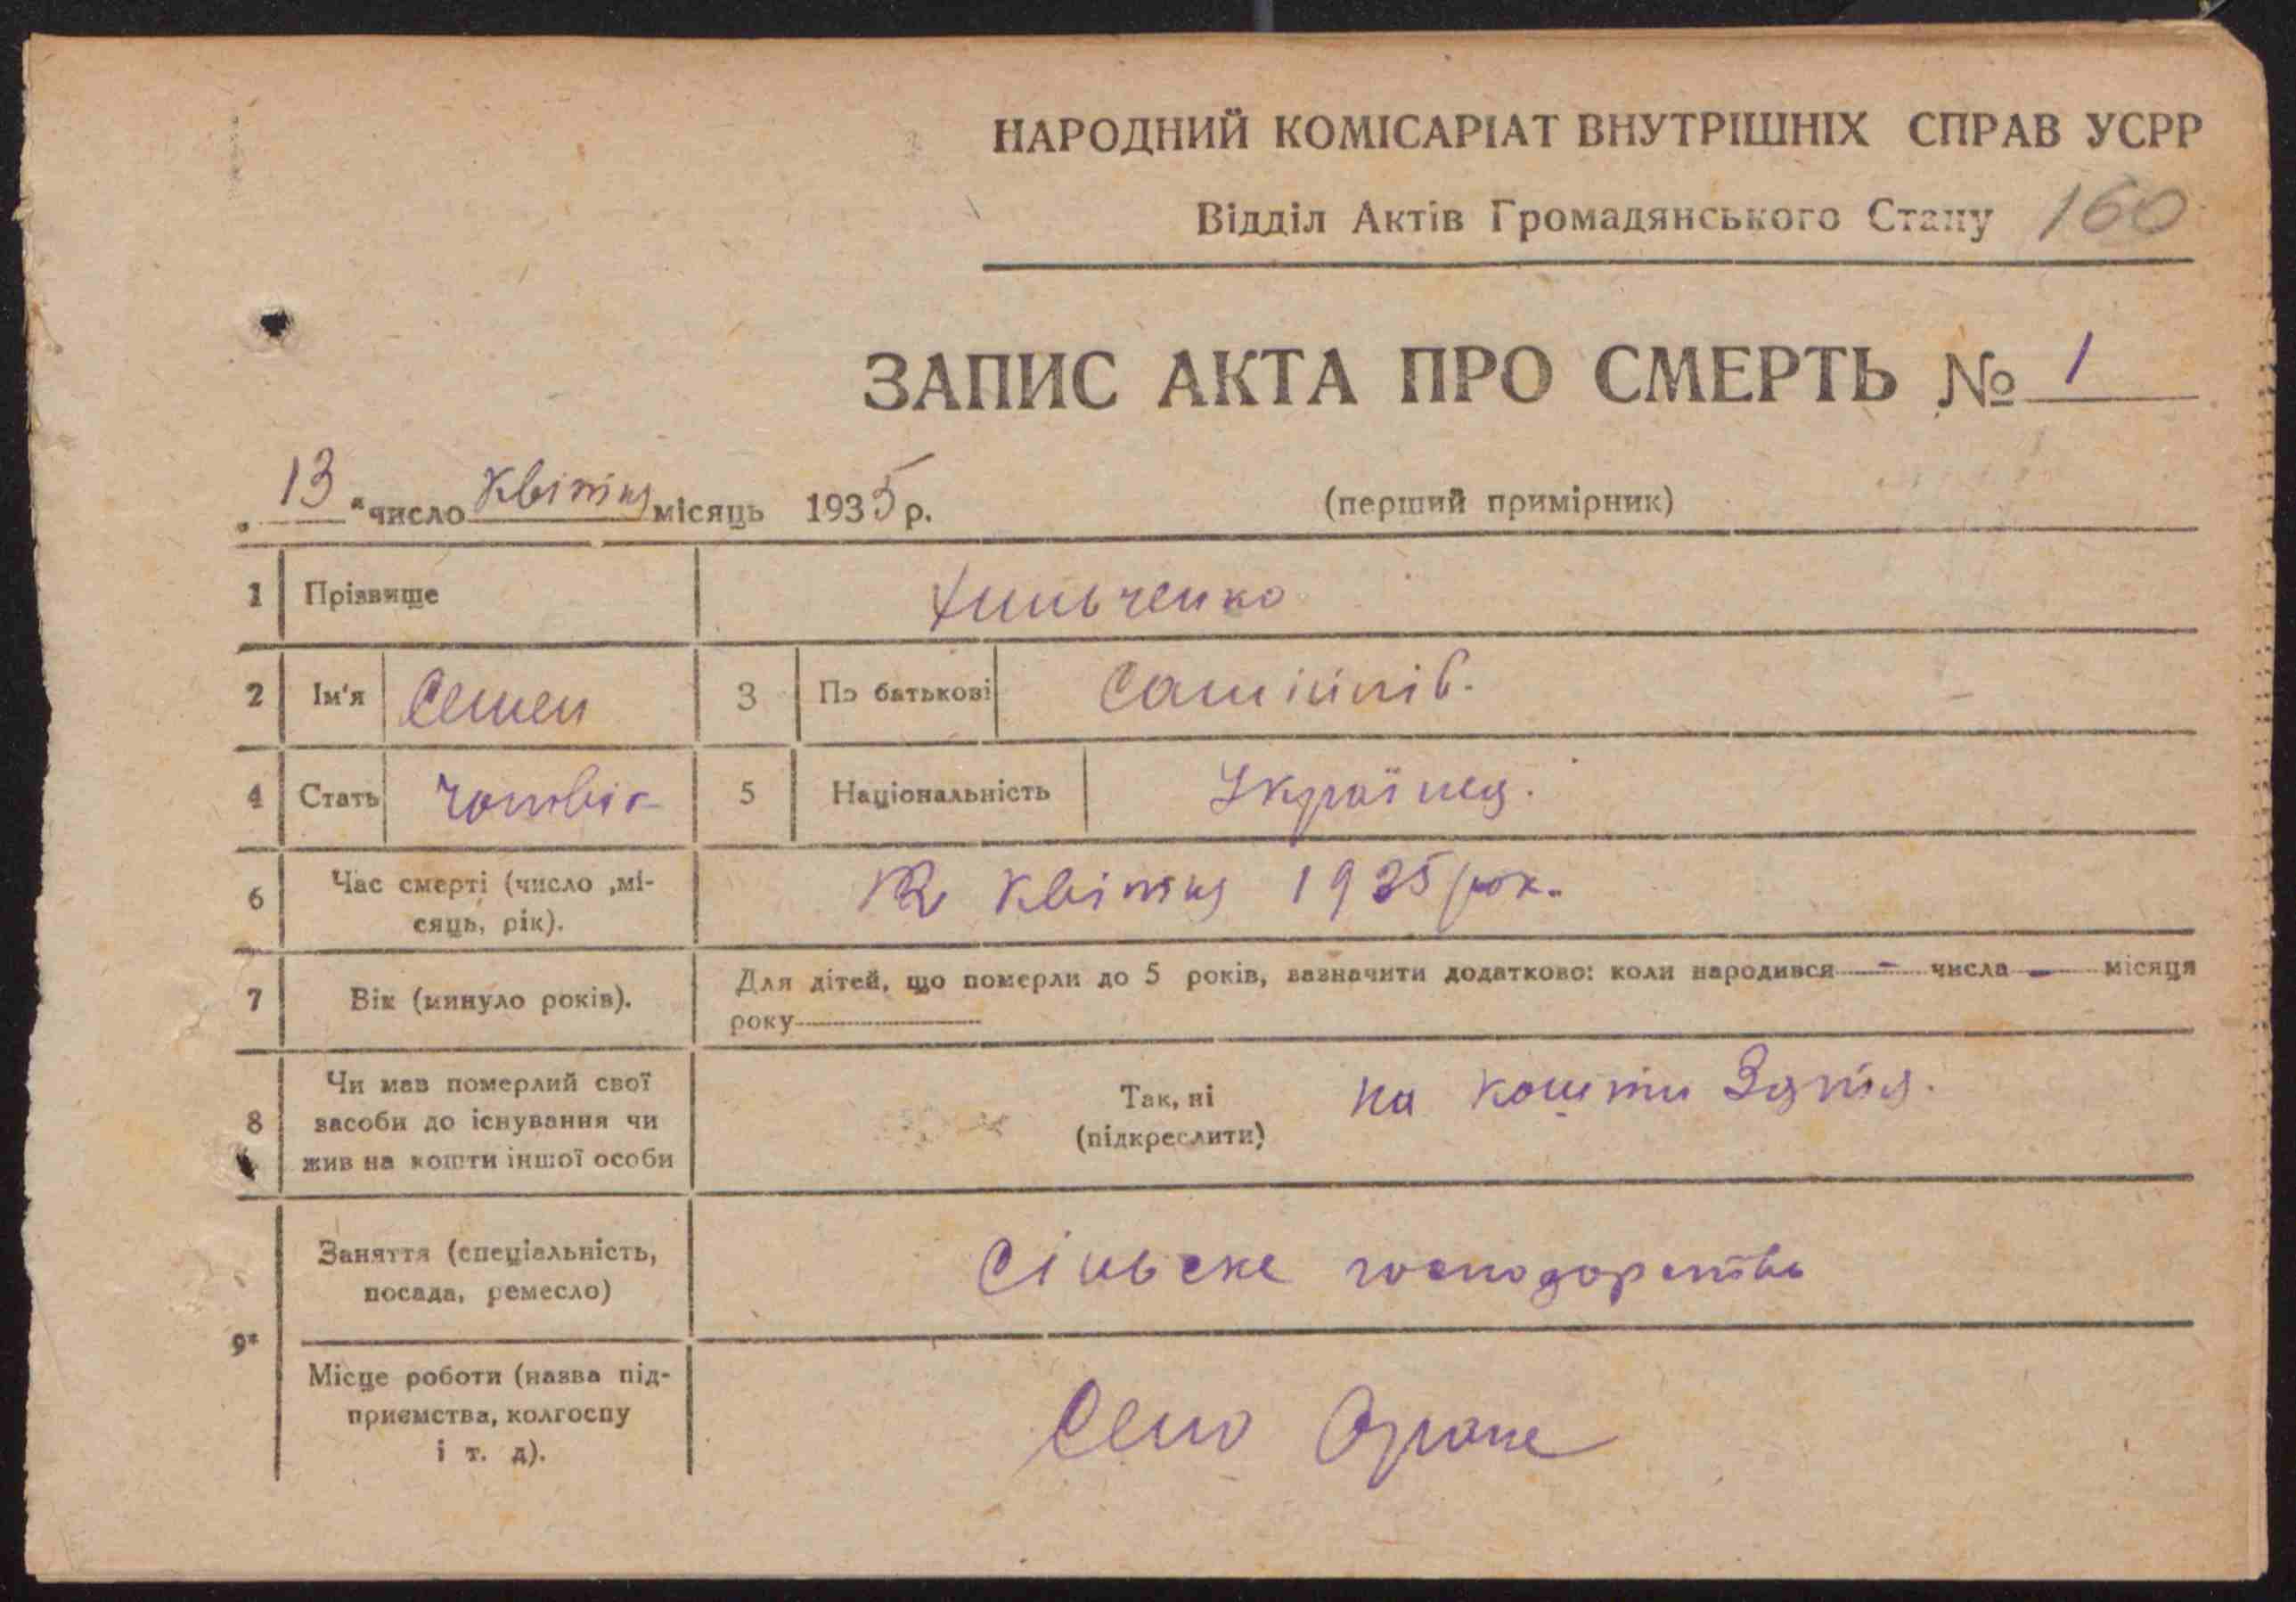 НАРОДНИЙ КОМІСАРІАТ ВНУТРІШНІХ СПРАВ УСРР
Відділ Актів Громадянського Стану 160
ЗАПИС АКТА ПРО СМЕРТЬ № 1
„ 13 " число Квітня місяць 1935 р. (перший примірник)
1 Прізвище Хильченко
2 Ім'я Семен 3 По батькові
4 Стать Чоловік 5 Національність Українец.
6 Час смерті (число ,мі-
сяць, рік). 12 Квітня 1935 рок.
7 Вік (минуло років). Для дітей, що померли до 5 років, зазначити додатково: коли народився - числа - місяця
року
8 Чи мав померлий свої
засоби до існування чи
жив на кошти іншої особи
Так, ні
(підкреслити)
на кошти Зятя.
9* Заняття (спеціальність,
посада, ремесло) Сільске господарство
Місце роботи (назва під-
приємства, колгоспу
і т. д).
Село